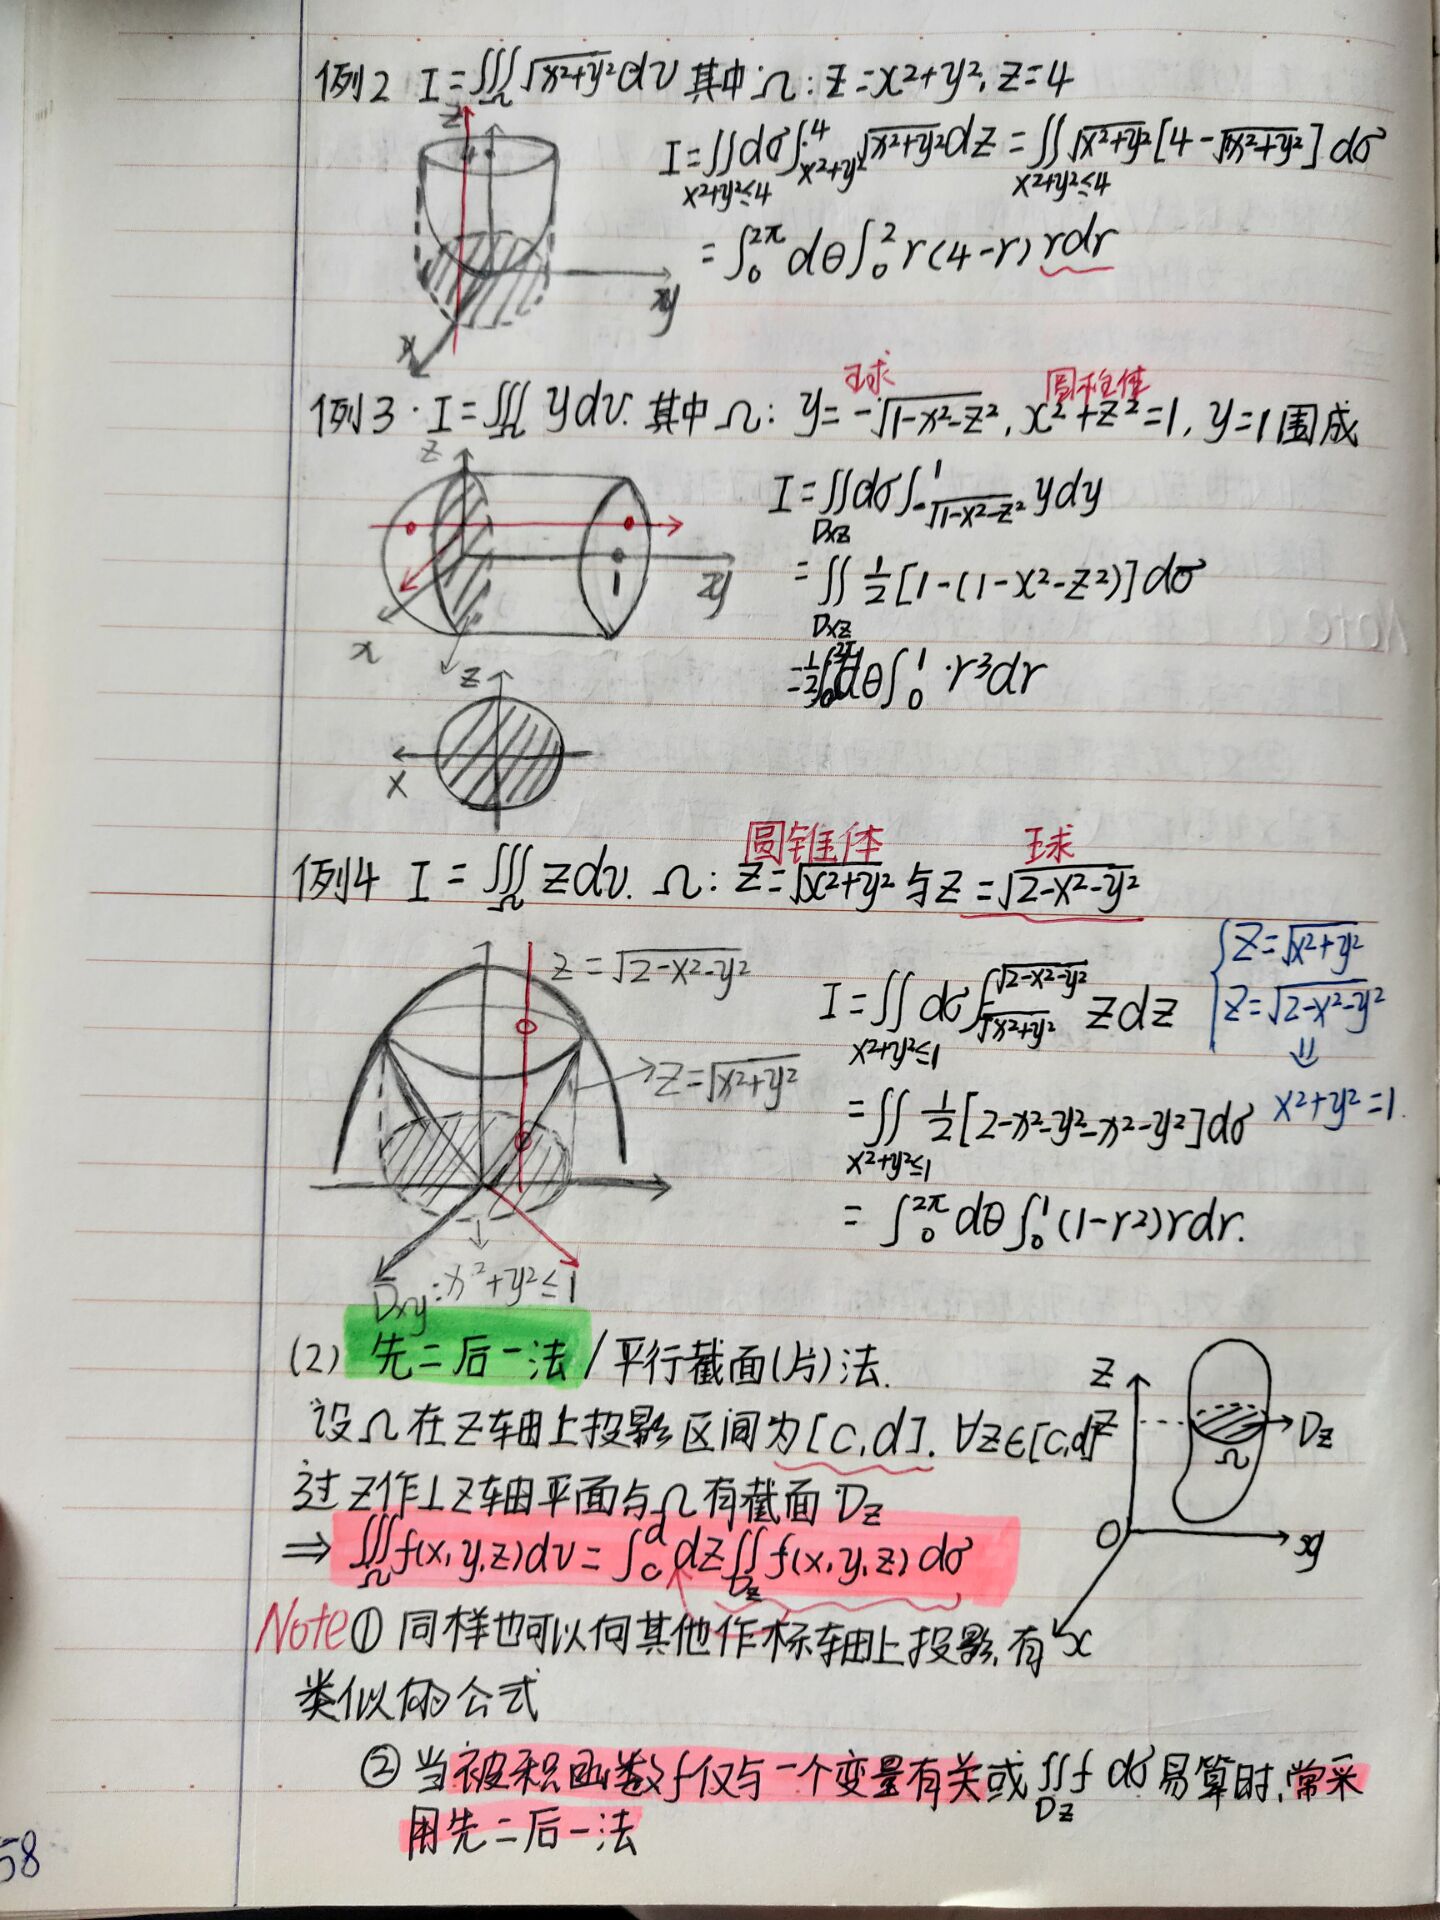 例2 I=∭_Ω √(x²+y²) dv 其中Ω: z=x²+y², z=4
z
4
I=∬_{x²+y²≤4} dσ ∫_{x²+y²}^{4} √(x²+y²) dz = ∬_{x²+y²≤4} √(x²+y²) [4-√(x²+y²)] dσ
= ∫_0^{2π} dθ ∫_0^2 r(4-r) rdr
y
x
球 圆柱体
例3. I=∭_Ω y dv. 其中Ω: y=-√(1-x²-z²), x²+z²=1, y=1围成
z
I=∬_{Dxz} dσ ∫_{-√(1-x²-z²)}^{1} y dy
1
y
= ∬_{Dxz} ½[1-(1-x²-z²)] dσ
x
= ½ ∫_0^{2π} dθ ∫_0^1 ·r³dr
z
x
圆锥体 球
例4 I=∭_Ω z dv. Ω: z=√(x²+y²) 与 z=√(2-x²-y²)
z=√(2-x²-y²)
z=√(x²+y²)
I=∬_{x²+y²≤1} dσ ∫_{√(x²+y²)}^{√(2-x²-y²)} z dz
{ z=√(x²+y²)
z=√(2-x²-y²)
⇓
x²+y²=1.
= ∬_{x²+y²≤1} ½[2-x²-y²-x²-y²] dσ
= ∫_0^{2π} dθ ∫_0^1 (1-r²) rdr.
Dxy: x²+y²≤1
(2) 先二后一法/平行截面(片)法.
设Ω在z轴上投影区间为[c,d]. ∀z∈[c,d]
过z作⊥z轴平面与Ω有截面Dz
⇒ ∭_Ω f(x,y,z)dv = ∫_c^d dz ∬_{Dz} f(x,y,z) dσ
z
z
Dz
Ω
O
y
x
Note ① 同样也可以向其他作标轴上投影,有
类似的公式
② 当被积函数f仅与一个变量有关或 ∬_{Dz} f dσ 易算时,常采
用先二后一法
58